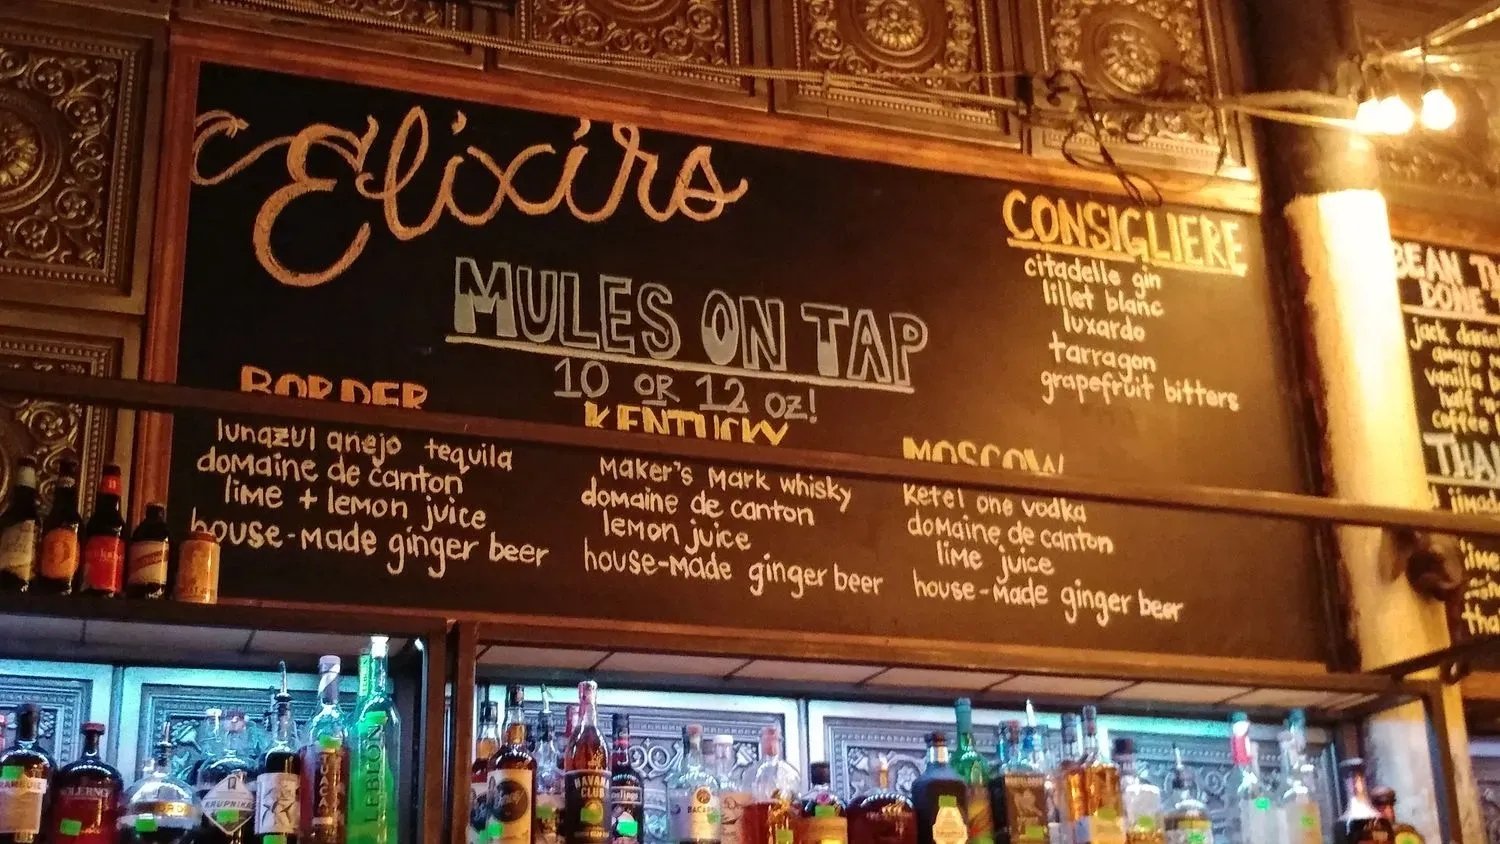 Elixirs
MULES ON TAP
10 OR 12 oz!
BORDER
lunazul añejo tequila
domaine de canton
lime + lemon juice
house-made ginger beer
KENTUCKY
Maker's Mark whisky
domaine de canton
lemon juice
house-made ginger beer
MOSCOW
Ketel one vodka
domaine de canton
lime juice
house-made ginger beer
CONSIGLIERE
citadelle gin
lillet blanc
luxardo
tarragon
grapefruit bitters
BEAN
DONE
jack
vanilla
half
coffee
KRUPNIKAS
LEBLON
HAVANA
CLUB
BACARDI